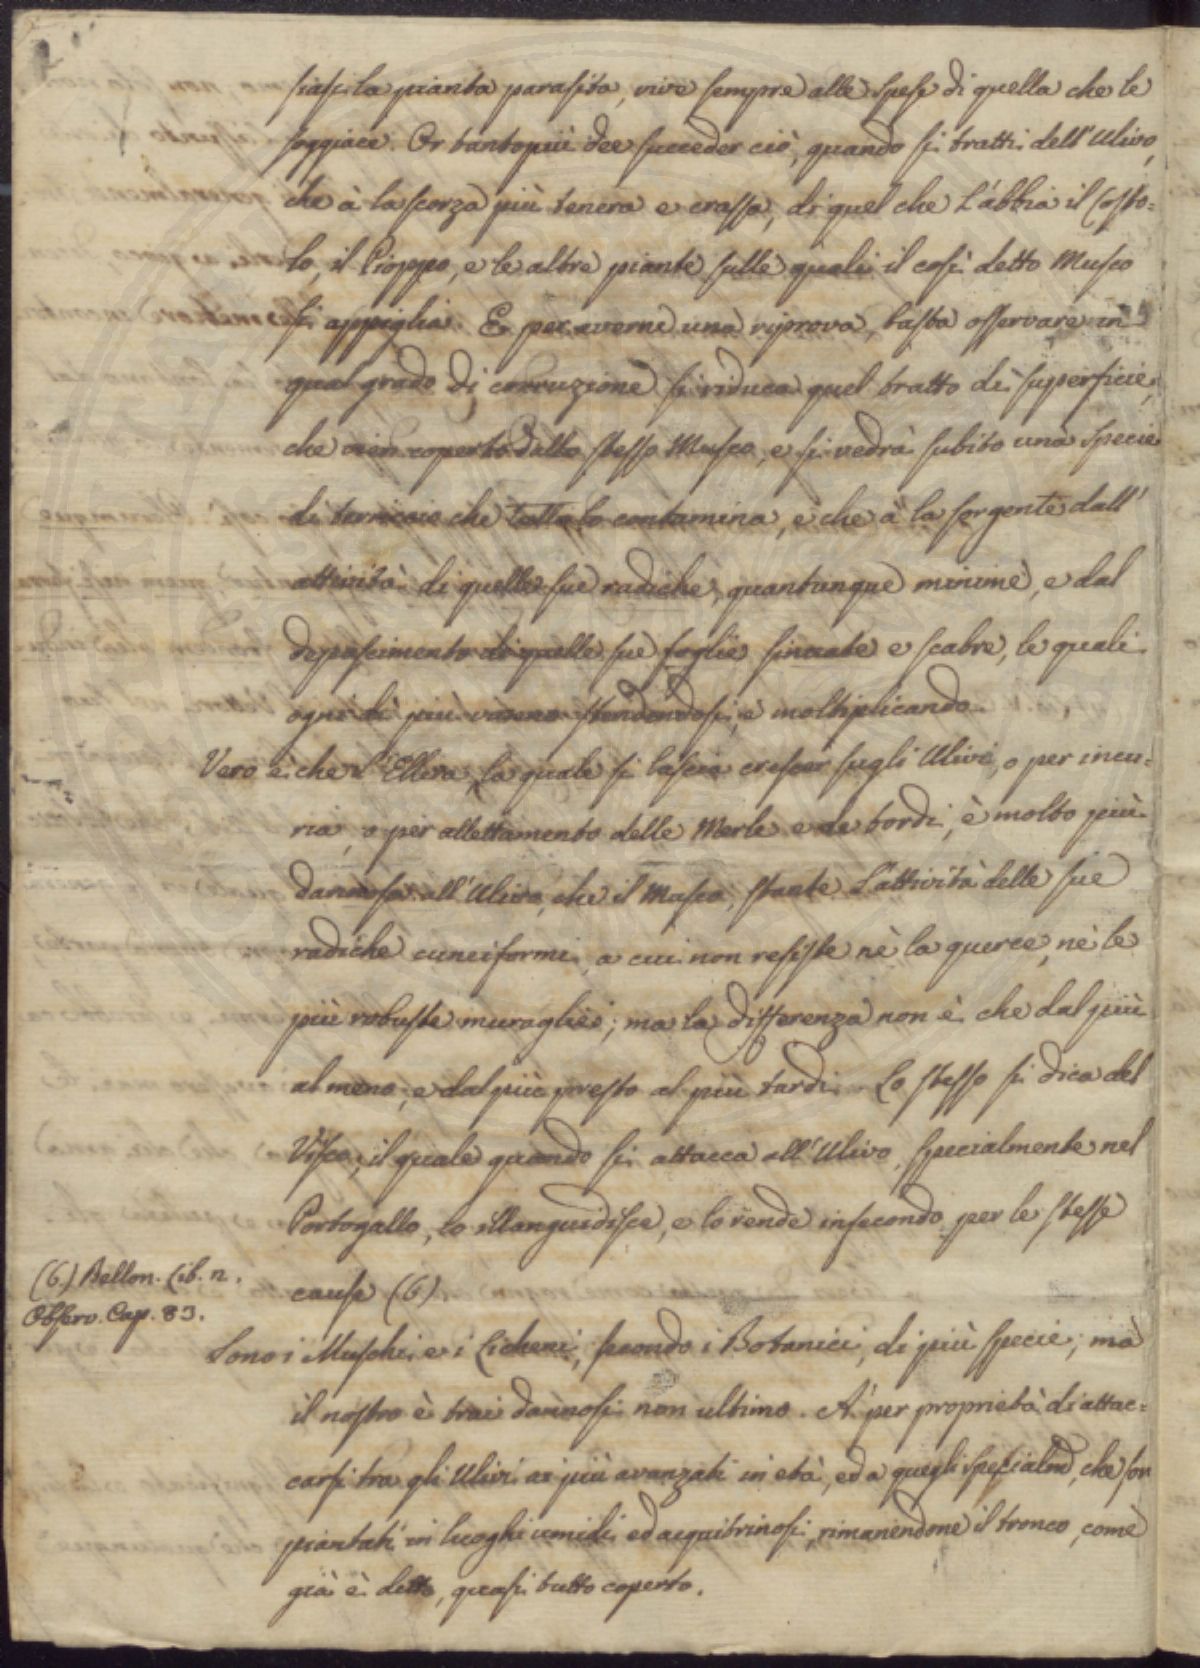 siasi la pianta parasita, vive sempre alle spese di quella che le
soggiace. Or tantopiù dee succeder ciò, quando si tratti dell'Ulivo,
che à la scorza più tenera e crassa, di quel che l'abbia il
lo, il Pioppo, e le altre piante sulle quali il così detto Musco
si appiglia. E per averne una riprova, basta osservare in
qual grado di corruzione si riduca quel tratto di superficie,
che vien coperto dallo stesso Musco, e si vedrà subito una specie
di terriccio che tutta lo contamina, e che à la sorgente dall'
attività di quelle sue radiche, quantunque minime, e dal
depascimento di quelle sue foglie sinuate e scabre, le quali
ogni dì più vanno stendendosi, e moltiplicando.
Vero è che l'Ellera, la quale si lascia crescer sugli Ulivi, o per incu-
ria, o per allettamento delle Merle e de tordi, è molto più
dannosa all'Ulivo, che il Musco, stante l'attività delle sue
radiche cuneiformi, a cui non resiste nè la querce, nè le
più robuste muraglie; ma la differenza non è che dal più
al meno, e dal più presto al più tardi. Lo stesso si dica del
Visco, il quale quando si attacca all'Ulivo, specialmente nel
Portogallo, lo illanguidisce, e lo rende infecondo per le stesse
cause (6).
(6.) Bellon. Lib. n.
Osserv. Cap. 83.
Sono i Muschi e i Licheni, secondo i Botanici, di più specie; ma
il nostro è trai dannosi non ultimo. A' per proprietà di attac=
carsi tra gli Ulivi ai più avanzati in età, ed a quegli specialmẽ, che son
piantati in luoghi umidi ed acquitrinosi, rimanendone il tronco, come
già è detto, quasi tutto coperto.